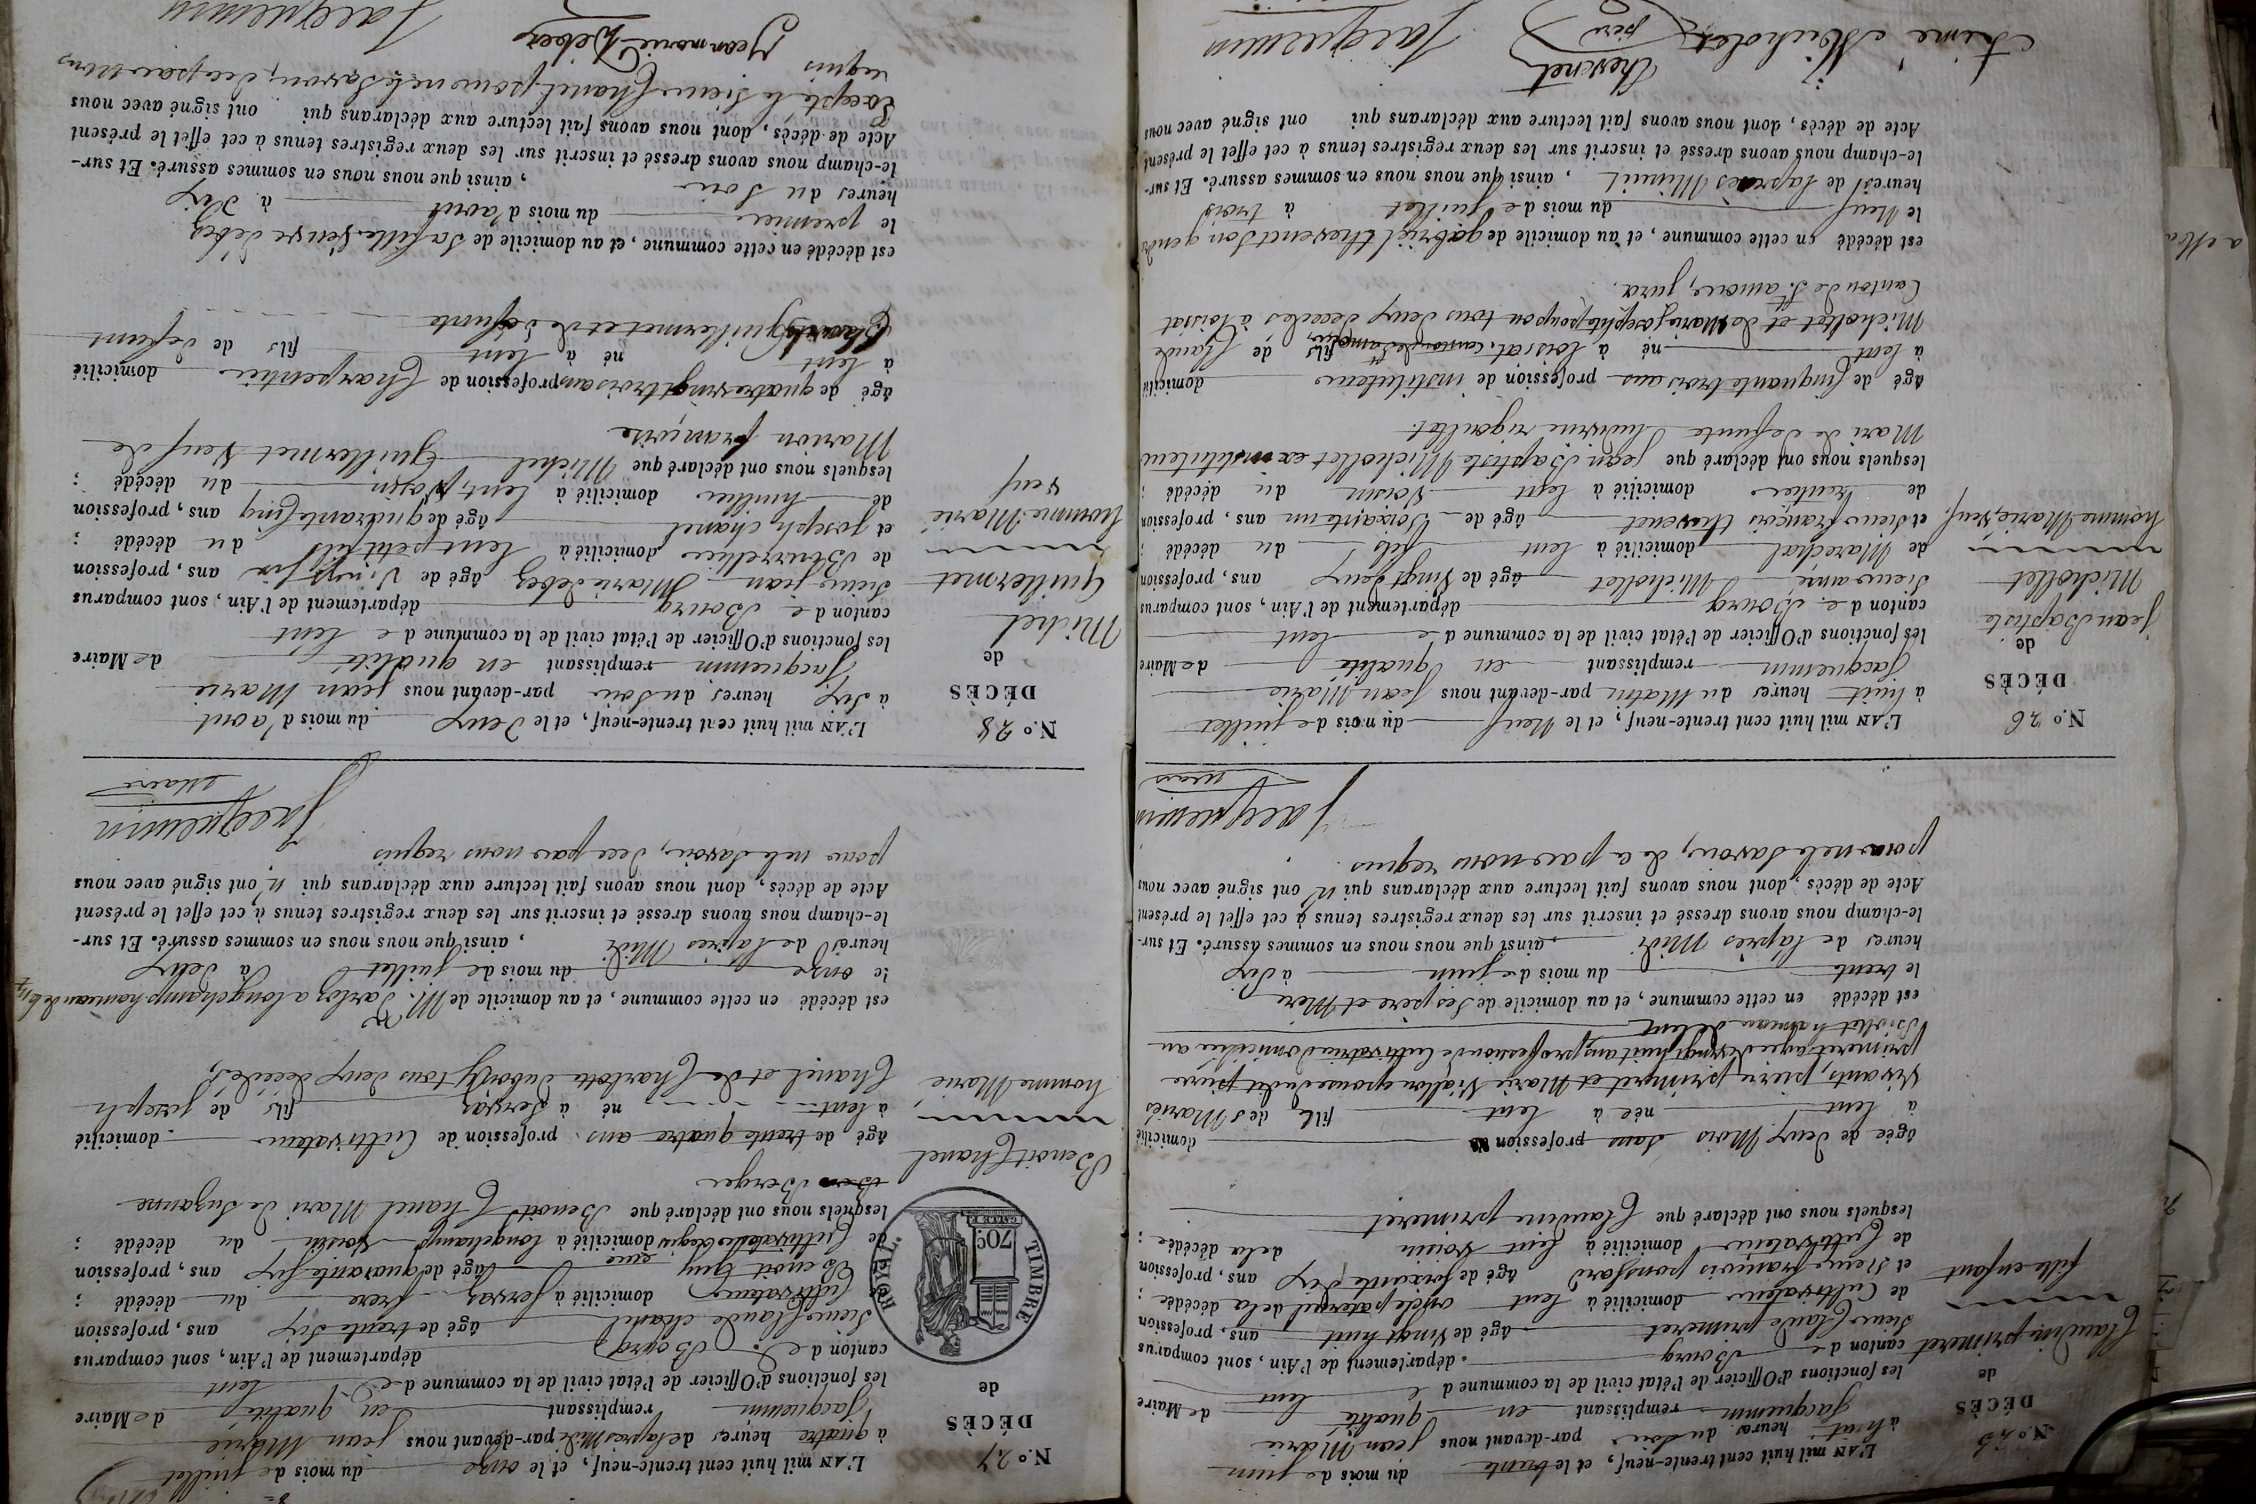 N.º 25
DÉCÈS
de
Claudine primeret
fille enfant
L'AN mil huit cent trente-neuf, et le trente du mois de juin
à huit heures du soir par-devant nous jean Marie
Jacquemin remplissant en qualité de Maire
les fonctions d'Officier de l'état civil de la commune de lent
canton de Bourg département de l'Ain, sont comparus
Sieur Claude primeret âgé de vingt huit ans, profession
de Cultivateur domicilié à lent oncle paternel de la décédée ;
et Sieur françois ponsard âgé de soixante dix ans, profession
de Cultivateur domicilié à lent voisin de la décédée ;
lesquels nous ont déclaré que Claudine primeret
âgée de deux Mois sans profession domicilié
à lent née à lent fille des Mariés
vivants, pierre primeret et Marie Viallon epouse dudit pierre
primeret agée de vingt huit ans, profession de Cultivatrice domiciliée au
hameau de lent
est décédé en cette commune, et au domicile de Ses père et Mère
le trente du mois de juin à Six
heures de l'après Midi, ainsi que nous nous en sommes assuré. Et sur-
le-champ nous avons dressé et inscrit sur les deux registres tenus à cet effet le présent
Acte de décès, dont nous avons fait lecture aux déclarans qui n' ont signé avec nous
pour ne le Savoir, de ce par nous requis
Jacquemin
maire
N.º 26
DÉCÈS
de
jean Baptiste
Michollet
homme Marié, veuf.
L'AN mil huit cent trente-neuf, et le Neuf du mois de juillet
à huit heures du Matin par-devant nous Jean Marie
Jacquemin remplissant en qualité de Maire
les fonctions d'Officier de l'état civil de la commune de lent
canton de Bourg département de l'Ain, sont comparus
Sieur aimé Michollet âgé de Vingt deux ans, profession
de Marechal domicilié à lent fils du décédé ;
et Sieur françois thevenet âgé de Soixante un ans, profession
de rentier domicilié à lent Voisin du décédé ;
lesquels nous ont déclaré que jean Baptiste Michollet ex instituteur
Mari de defunte Ludivine rigollet
âgé de Cinquante trois ans profession de instituteur domicilié
à lent né à loisiat, canton de St amour fils de Claude
Michollet et de Marie josephte poupon tous deux decedes à loisiat
Canton de St. amour, jura.
est décédé en cette commune, et au domicile de gabriel thevenet Son gendre
le Neuf du mois de juillet à trois
heures de l'après Minuit, ainsi que nous nous en sommes assuré. Et sur-
le-champ nous avons dressé et inscrit sur les deux registres tenus à cet effet le présent
Acte de décès, dont nous avons fait lecture aux déclarans qui ont signé avec nous
Aimé Michollet thevenet père Jacquemin
N.º 27
DÉCÈS
de
TIMBRE ROYAL.
70 C.
Benoit Chanel
homme Marié,
L'AN mil huit cent trente-neuf, et le onze du mois de juillet
à quatre heures de l'apres Midi par-devant nous jean Marie
Jacquemin remplissant en qualité de Maire
les fonctions d'Officier de l'état civil de la commune de lent
canton de Bourg département de l'Ain, sont comparus
Sieur Claude Chanel âgé de trente Six ans, profession
Cultivateur domicilié à Servas frere du décédé ;
Benoit Guy âgé de quarante Six ans, profession
de Cultivateur domicilié à longchamp voisin du décédé ;
lesquels nous ont déclaré que Benoit Chanel Mari de Suzanne
Berger
âgé de trente quatre ans profession de Cultivateur domicilié
à lent né à Servas fils de joseph
Chanel et de Charlotte tous deux décédés,
est décédé en cette commune, et au domicile de Mr. a longchamp hameau de lent
le onze du mois de juillet à deux
heures de l'après Midi, ainsi que nous nous en sommes assuré. Et sur-
le-champ nous avons dressé et inscrit sur les deux registres tenus à cet effet le présent
Acte de décès, dont nous avons fait lecture aux déclarans qui n' ont signé avec nous
pour ne le Savoir, de ce par nous requis
Jacquemin
Maire
N.º 28
DÉCÈS
de
Michel
Guillermet
homme Marié
veuf
L'AN mil huit cent trente-neuf, et le deux du mois d'aout
à Six heures du Soir par-devant nous jean Marie
Jacquemin remplissant en qualité de Maire
les fonctions d'Officier de l'état civil de la commune de lent
canton de Bourg département de l'Ain, sont comparus
Sieur jean Marie debez âgé de Vingt Six ans, profession
de Bourrelier domicilié à lent petit fils du décédé ;
et joseph Chanel âgé de quarante Cinq ans, profession
de huillier domicilié à lent, voisin du décédé ;
lesquels nous ont déclaré que Michel Guillermet Veuf de
Marion françoise
âgé de quatre vingt trois ans profession de Charpentier domicilié
à lent né à lent fils de defunt
Guillermet et de defunte
est décédé en cette commune, et au domicile de Sa fille Veuve debez
le premier du mois d'aout à Dix
heures du Soir, ainsi que nous nous en sommes assuré. Et sur-
le-champ nous avons dressé et inscrit sur les deux registres tenus à cet effet le présent
Acte de décès, dont nous avons fait lecture aux déclarans qui ont signé avec nous
Excepté le Sieur Chanel pour ne le Savoir, de ce par nous
requis
Jean marie Debez Jacquemin